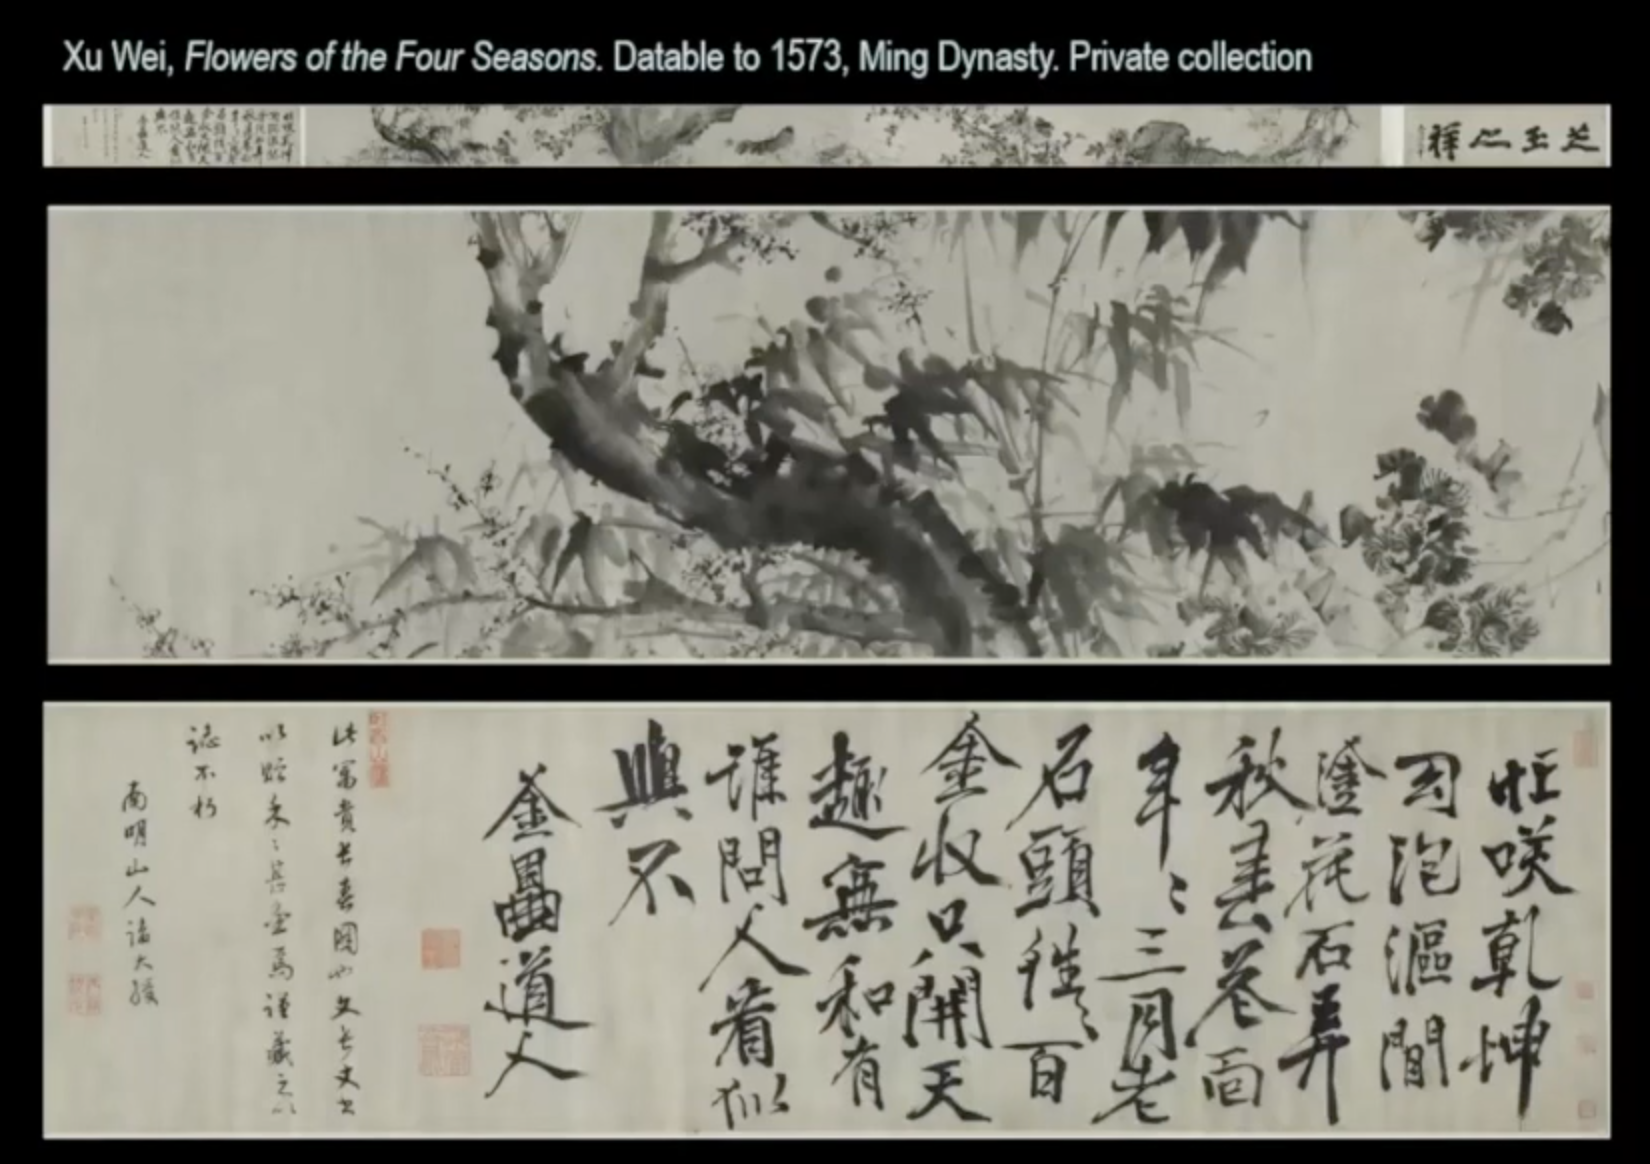 Xu Wei, Flowers of the Four Seasons. Datable to 1573, Ming Dynasty. Private collection
芝玉之祥
忙笑乾坤
幻泡漚閒
塗花石弄
秋春花面
年年三月老
石頭往往百
金收只開天
趣無和有
誰問人看似
與不
金罍道人
此富貴長春圖也文長文
謹藏之以
誌不朽
南明山人諸大綬